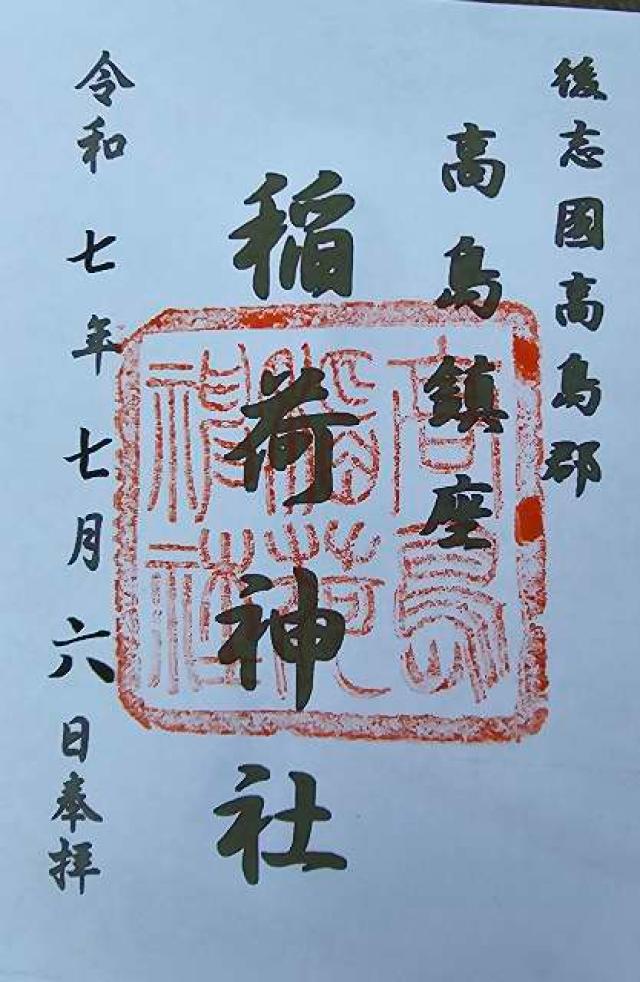 後志國高島郡
高島鎮座
稲荷神社
令和七年七月六日奉拝
高島
稲荷
神社